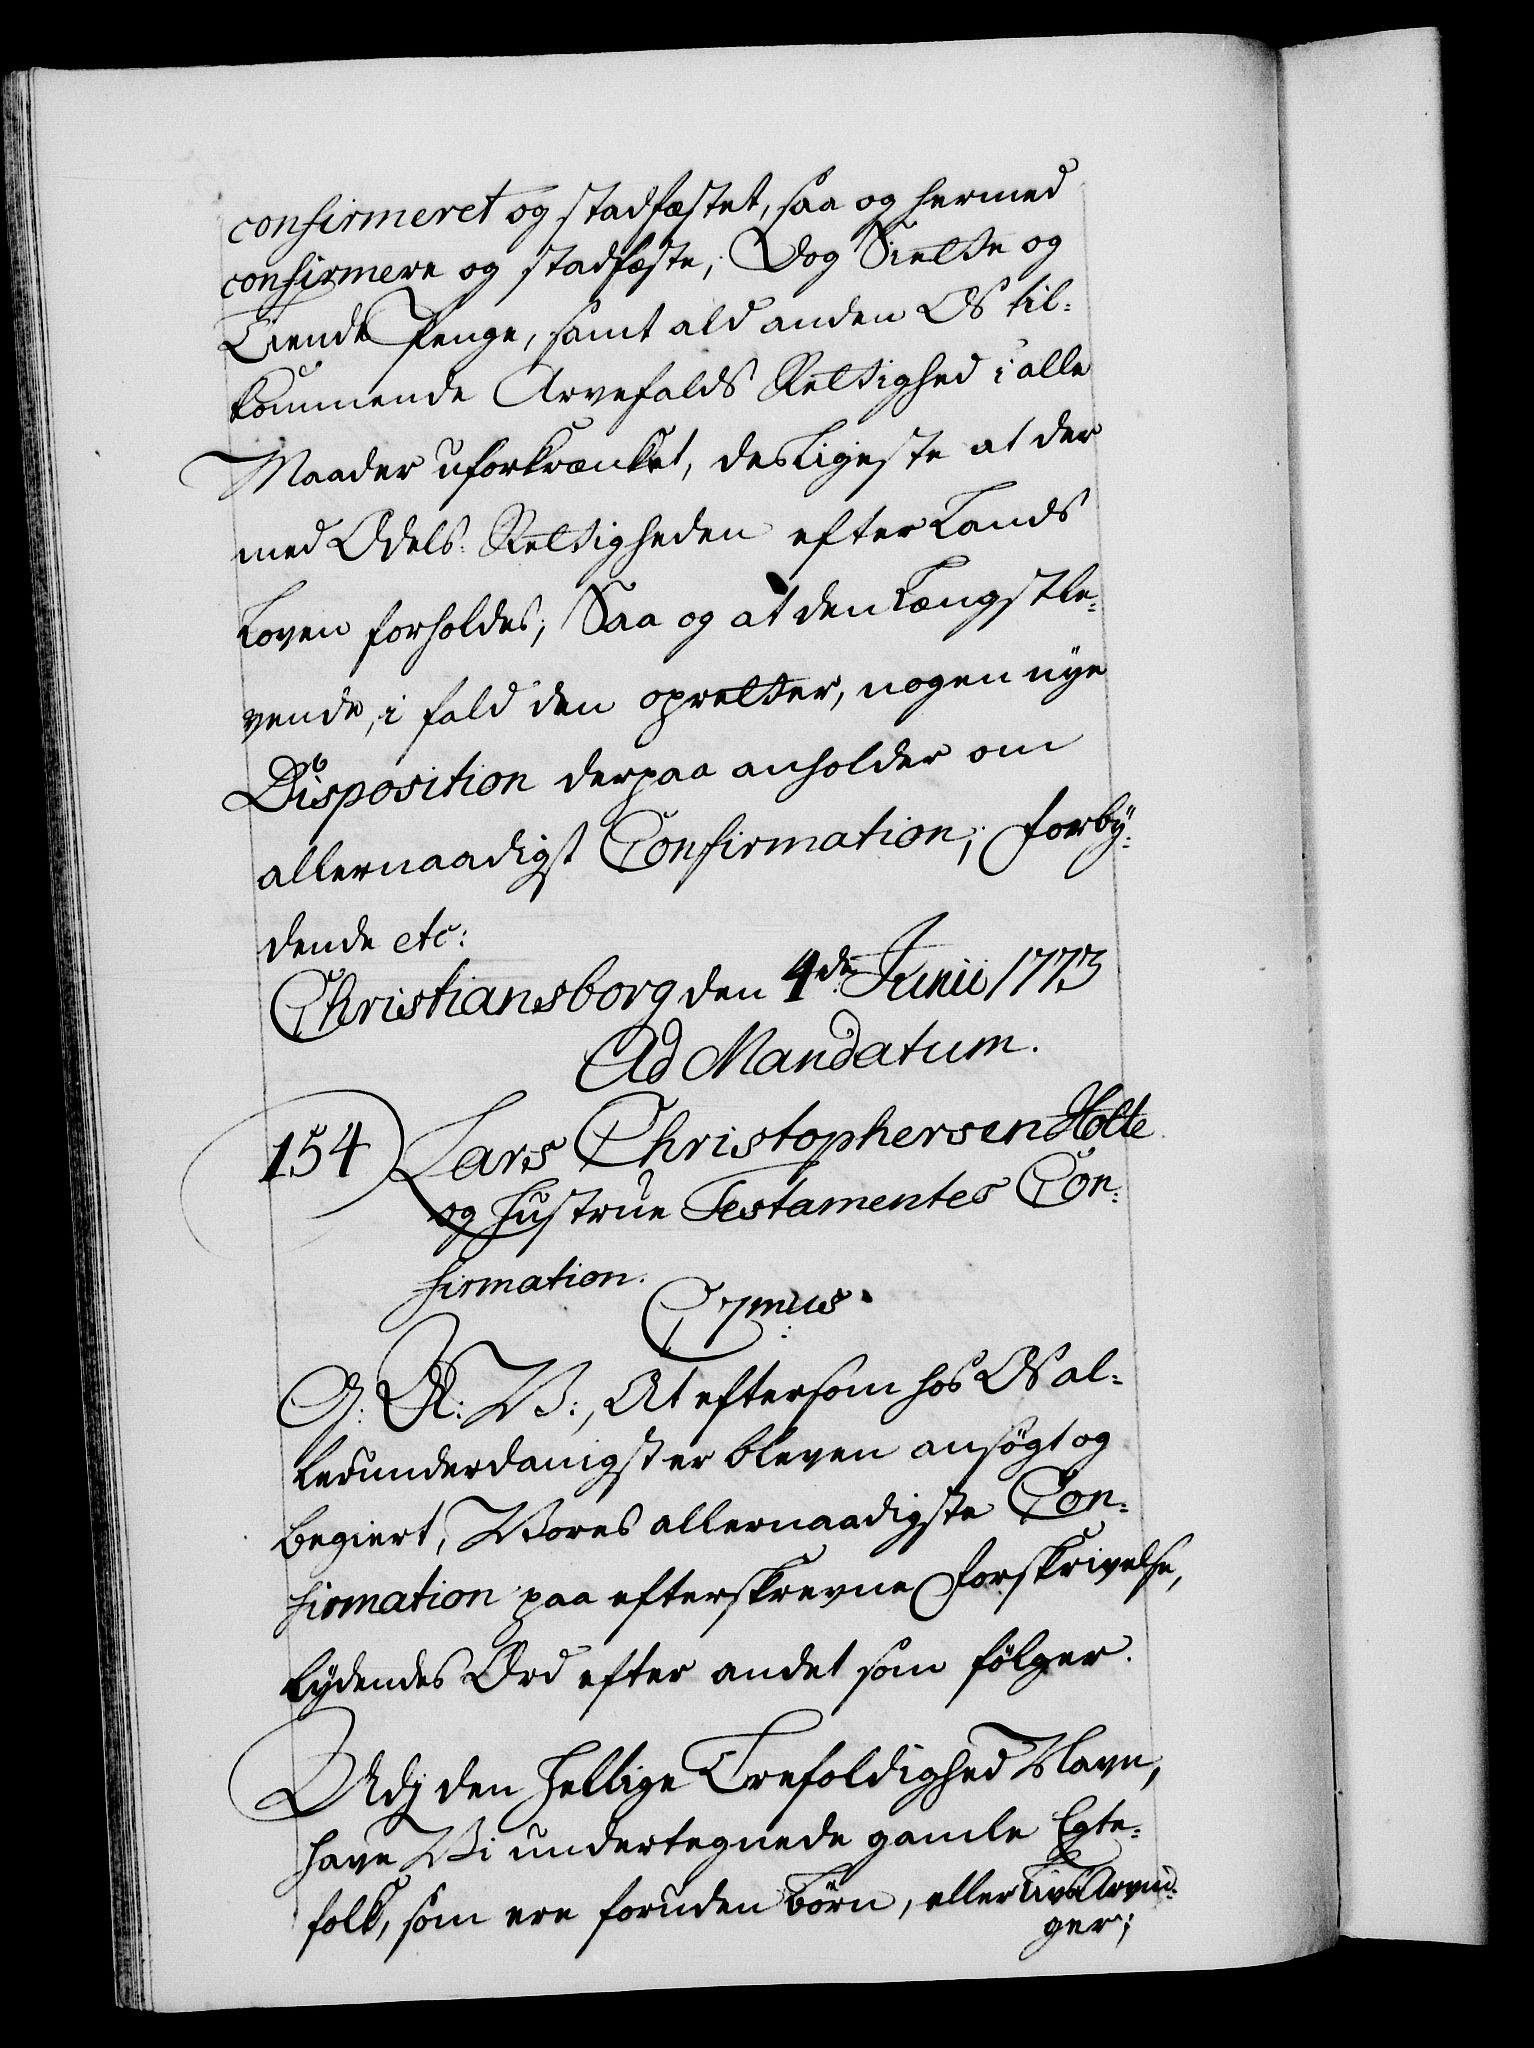 confirmeret og stadfæstet, saa og hermed
confirmere og stadfæste; Dog Siette og
Tiende Penge, samt ald anden Os til-
kommende Arvefalds Rettighed i alle
Maader uforkrænket, desligeste at der
med Odels-Rettigheden efter Lands
Loven forholdes; Saa og at den Længstle-
vende, i fald den opretter, nogen nye
Disposition derpaa anholder om
allernaadigst Confirmation; forby-
dende etc:
Christiansborg den 4de Junii 1773
Ad Mandatum.
154) Lars Christophersen Holte
og Hustrue Testamentes Con-
firmation.
C 7mus.
G: A: V:, At eftersom hos Os al-
lerunderdanigst er bleven ansøgt og
begiert, Vores allernaadigste Con-
firmation paa efterskrevne Forskrivelse,
lydendes Ord efter andet som følger.
Udj den Hellige Trefoldighed Navn,
have Vi undertegnede gamle Egte-
folk, som ere foruden Børn, eller Livs Arvin-
ger;